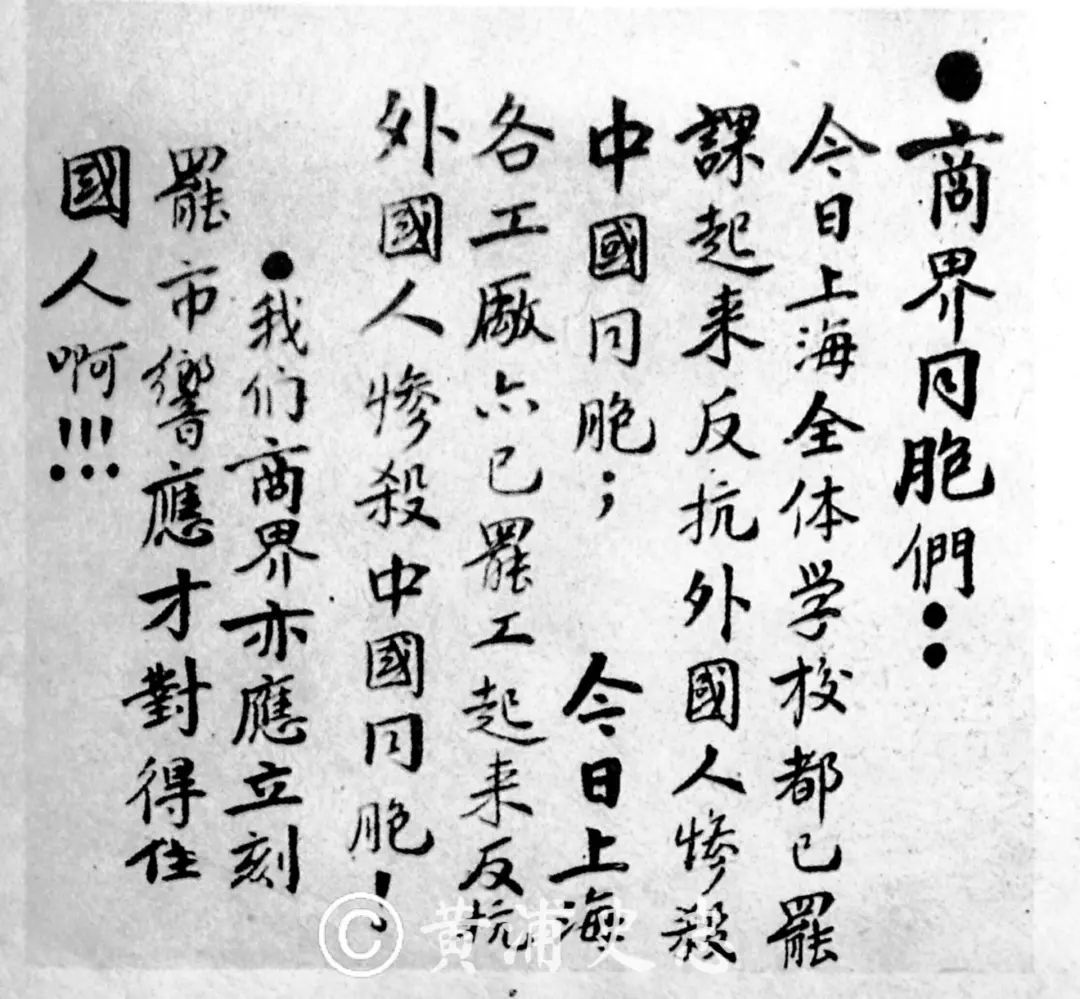 ●商界同胞們：
今日上海全体学校都已罷
課起来反抗外國人慘殺
中國同胞；　今日上海
各工廠亦已罷工起来反抗
外國人慘殺中國同胞！
●我们商界亦應立刻
罷市響應才對得住
國人啊!!!
©黄浦史志